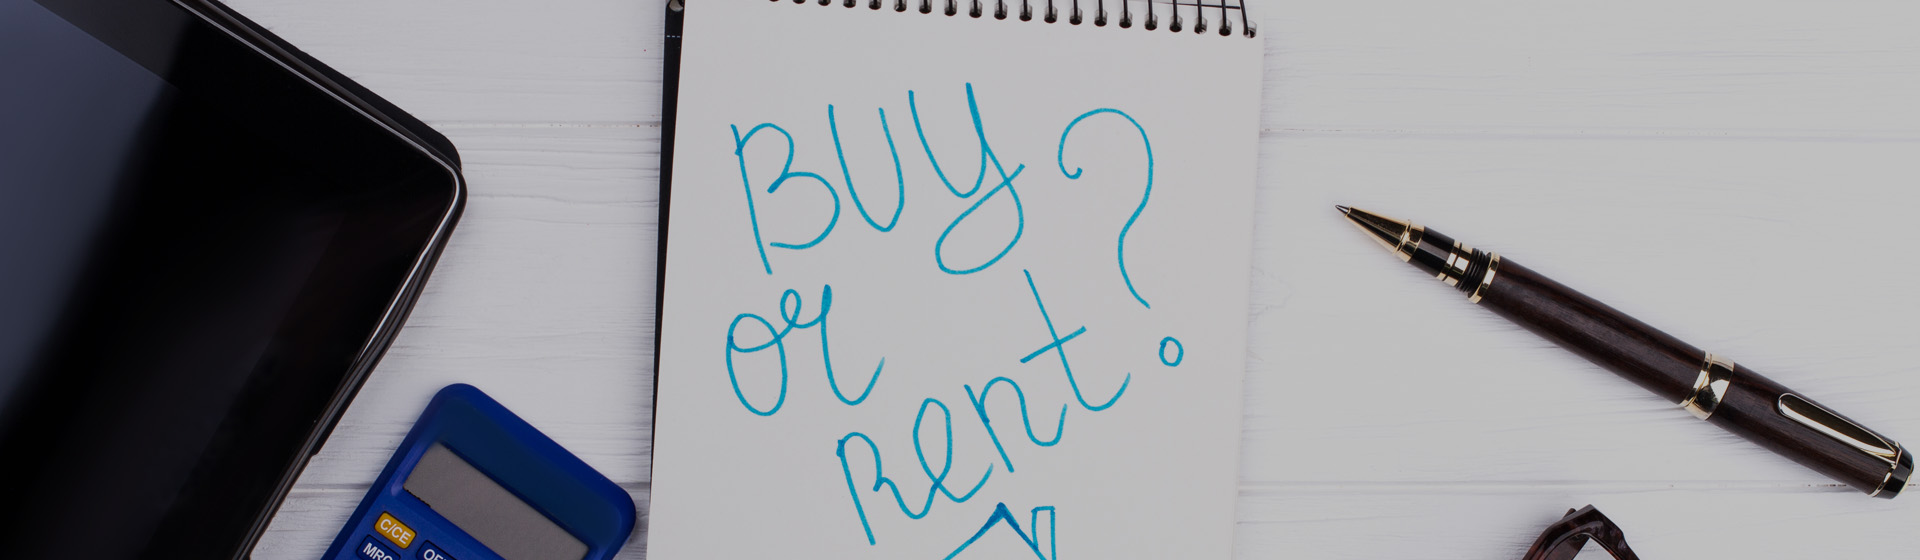 BUY ?
or
Rent
C/CE
MRC